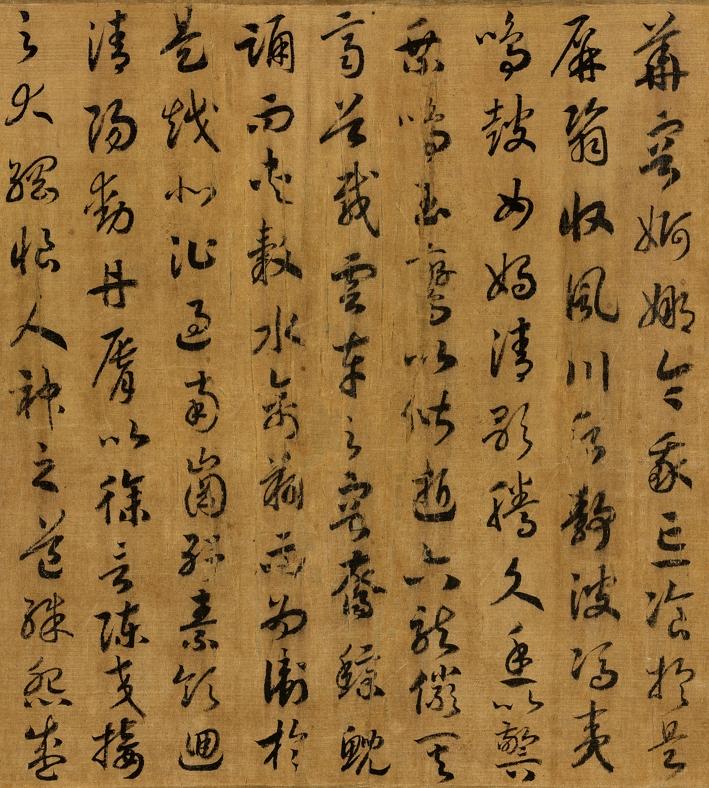 華容婀娜令我忘飡於是
屏翳收風川后靜波馮夷
鳴鼓女媧清歌騰文魚以警
乘鳴玉鸞以偕逝六龍儼其
齊首載雲車之容裔鯨鯢
踊而夾轂水禽翔而為衛於
是越北沚過南崗紆素領迴
清陽動丹脣以徐言陳交接
之大綱恨人神之道殊怨盛